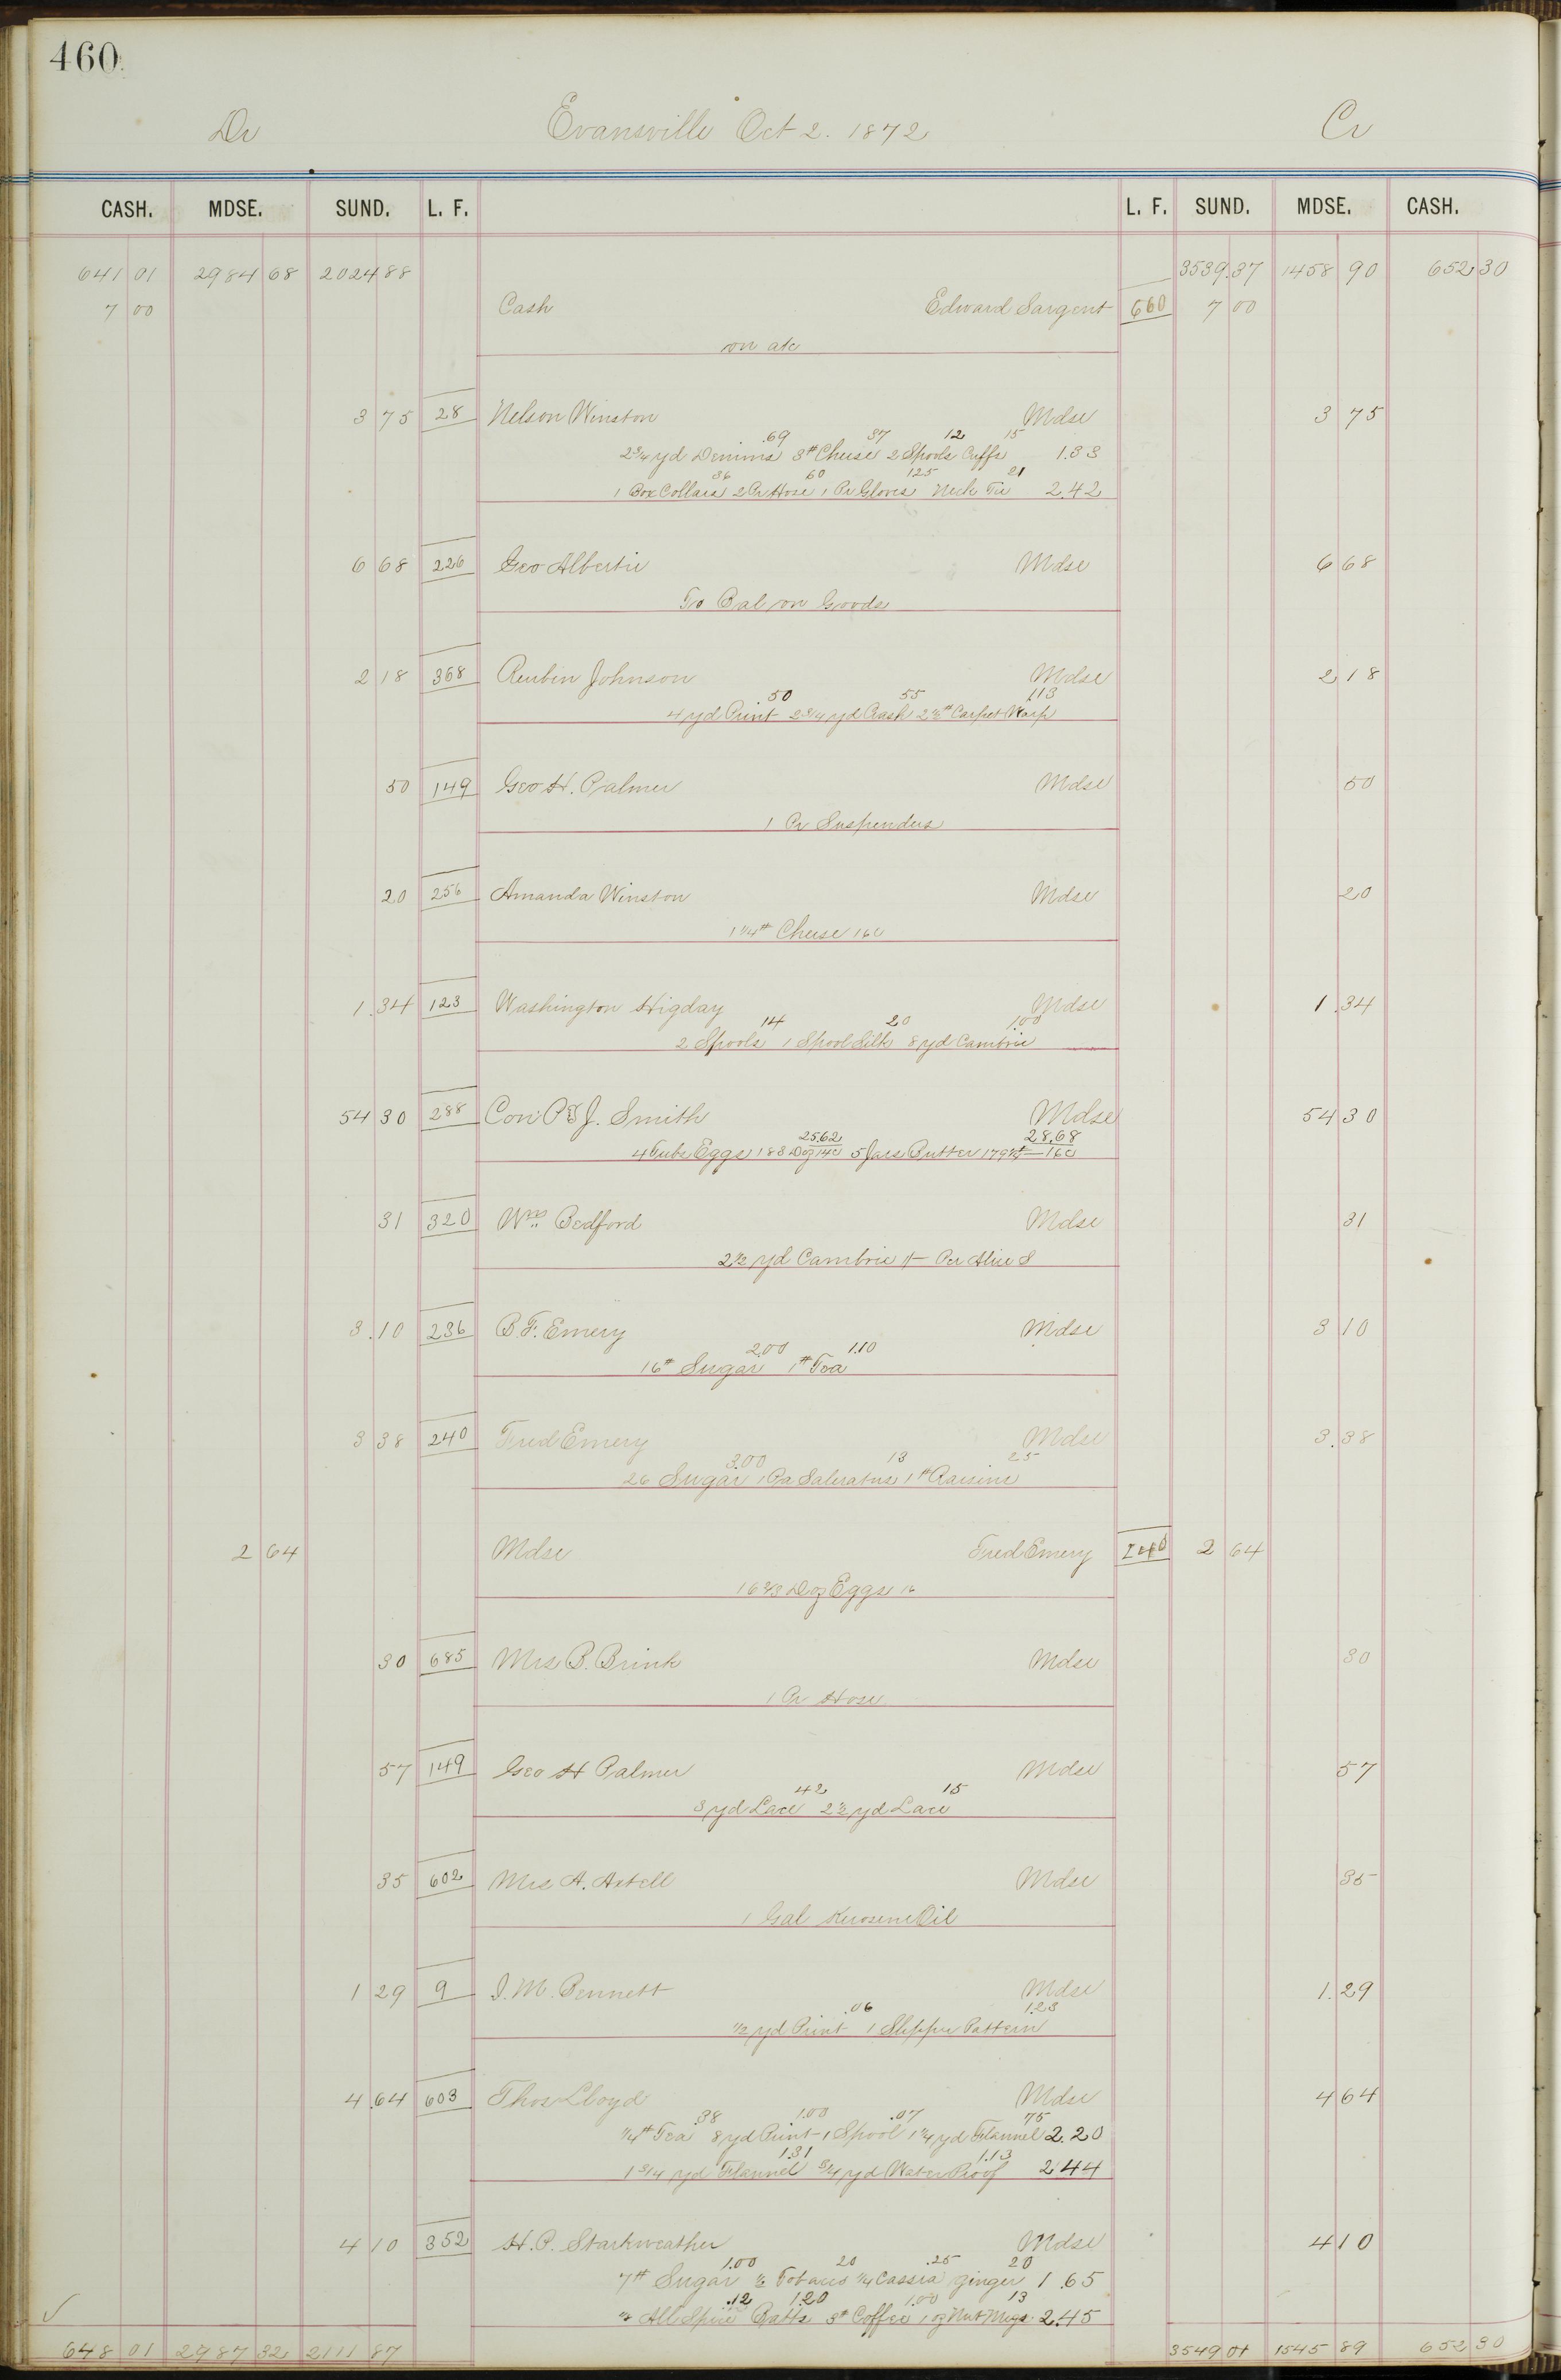 460
Dr Evansville Oct 2. 1872 Cr
CASH. MDSE. SUND. L. F. L. F. SUND. MDSE. CASH.
641 01 2984 68 2024 88 3539.37 1458 90 652 30
7 00 Cash Edward Sargent 660 7 00
on a/c
3 75 28 Nelson Winston Mdse 3 75
.69 37 12 15
2 3/4 yd Denims 3# Cheese 2 Spools Cuffs 1.33
36 60 125 21
1 Box Collars 2 Pr Hose 1 Pr Gloves Neck Tie 2.42
6 68 226 Geo Albertie Mdse 6 68
To Bal on Goods
2 18 368 Reubin Johnson Mdse 2 18
50 55 1.13
4 yd Print 2 3/4 yd Crash 2 1/2# Carpet Warp
50 149 Geo H. Palmer Mdse 50
1 Pr Suspenders
20 256 Amanda Winston Mdse 20
1 1/4# Cheese 16c
1.34 123 Washington Higday Mdse 1.34
14 20 1.00
2 Spools 1 Spool Silk 8 yd Cambric
54 30 288 Con P & J. Smith Mdse 54 30
25.62 28.68
4 Tubs Eggs 183 Doz 14c 5 Jars Butter 179 1/4# 16c
31 320 Wm Bedford Mdse 31
2 1/2 yd Cambric Per Alice S
3.10 236 B F. Emery Mdse 3 10
2.00 1.10
16# Sugar 1# Tea
3 38 240 Fred Emery Mdse 3.38
3.00 13 25
26 Sugar 1 Pa Saleratus 1# Raisins
2 64 Mdse Fred Emery 240 2 64
16 2/3 Doz Eggs 16
30 685 Mrs B. Brink Mdse 30
1 Pr Hose
57 149 Geo H Palmer Mdse 57
42 15
3 yd Lace 2 1/2 yd Lace
35 602 Mrs A. Axtell Mdse 35
1 Gal Kerosene Oil
1 29 9 I. M. Bennett Mdse 1.29
.06 1.23
1/2 yd Print 1 Slipper Pattern
4.64 603 Thos Lloyd Mdse 4 64
.38 1.00 .07 75
1/4# Tea 8 yd Print 1 Spool 1 1/4 yd Flannel 2.20
1.31 1.13
1 3/4 yd Flannel 3/4 yd Water Proof 2.44
4 10 352 H. P. Starkweather Mdse 4 10
1.00 20 .25 20
7# Sugar 1/2 Tobacco 1/4 Cassia ginger 1.65
.12 1.20 1.00 13
1/4 All Spice Batts 3# Coffee 1 oz Nut Megs 2.45
648 01 2987 32 2111 87 3549 01 1545 89 652 30